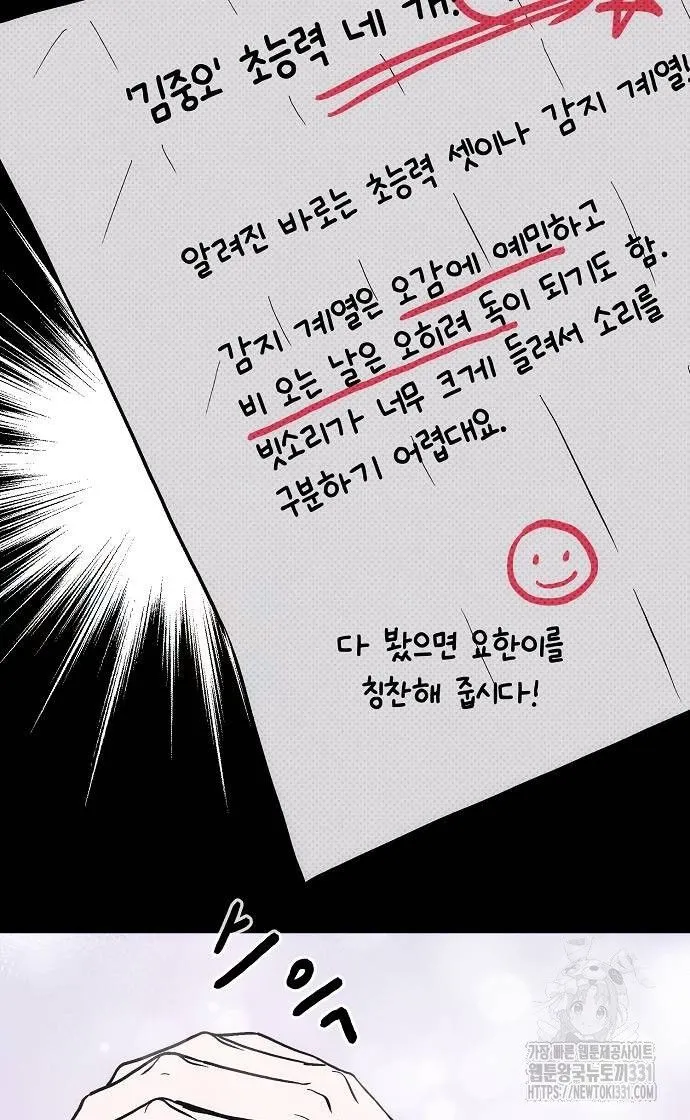 '김중오' 초능력 네 개.
알려진 바로는 초능력 셋이나 감지 계열!
감지 계열은 오감에 예민하고
비 오는 날은 오히려 독이 되기도 함.
빗소리가 너무 크게 들려서 소리를
구분하기 어렵대요.
다 봤으면 요한이를
칭찬해 줍시다!
스윽
가장 빠른 웹툰제공사이트
웹툰왕국뉴토끼331
WWW.NEWTOKI331.COM